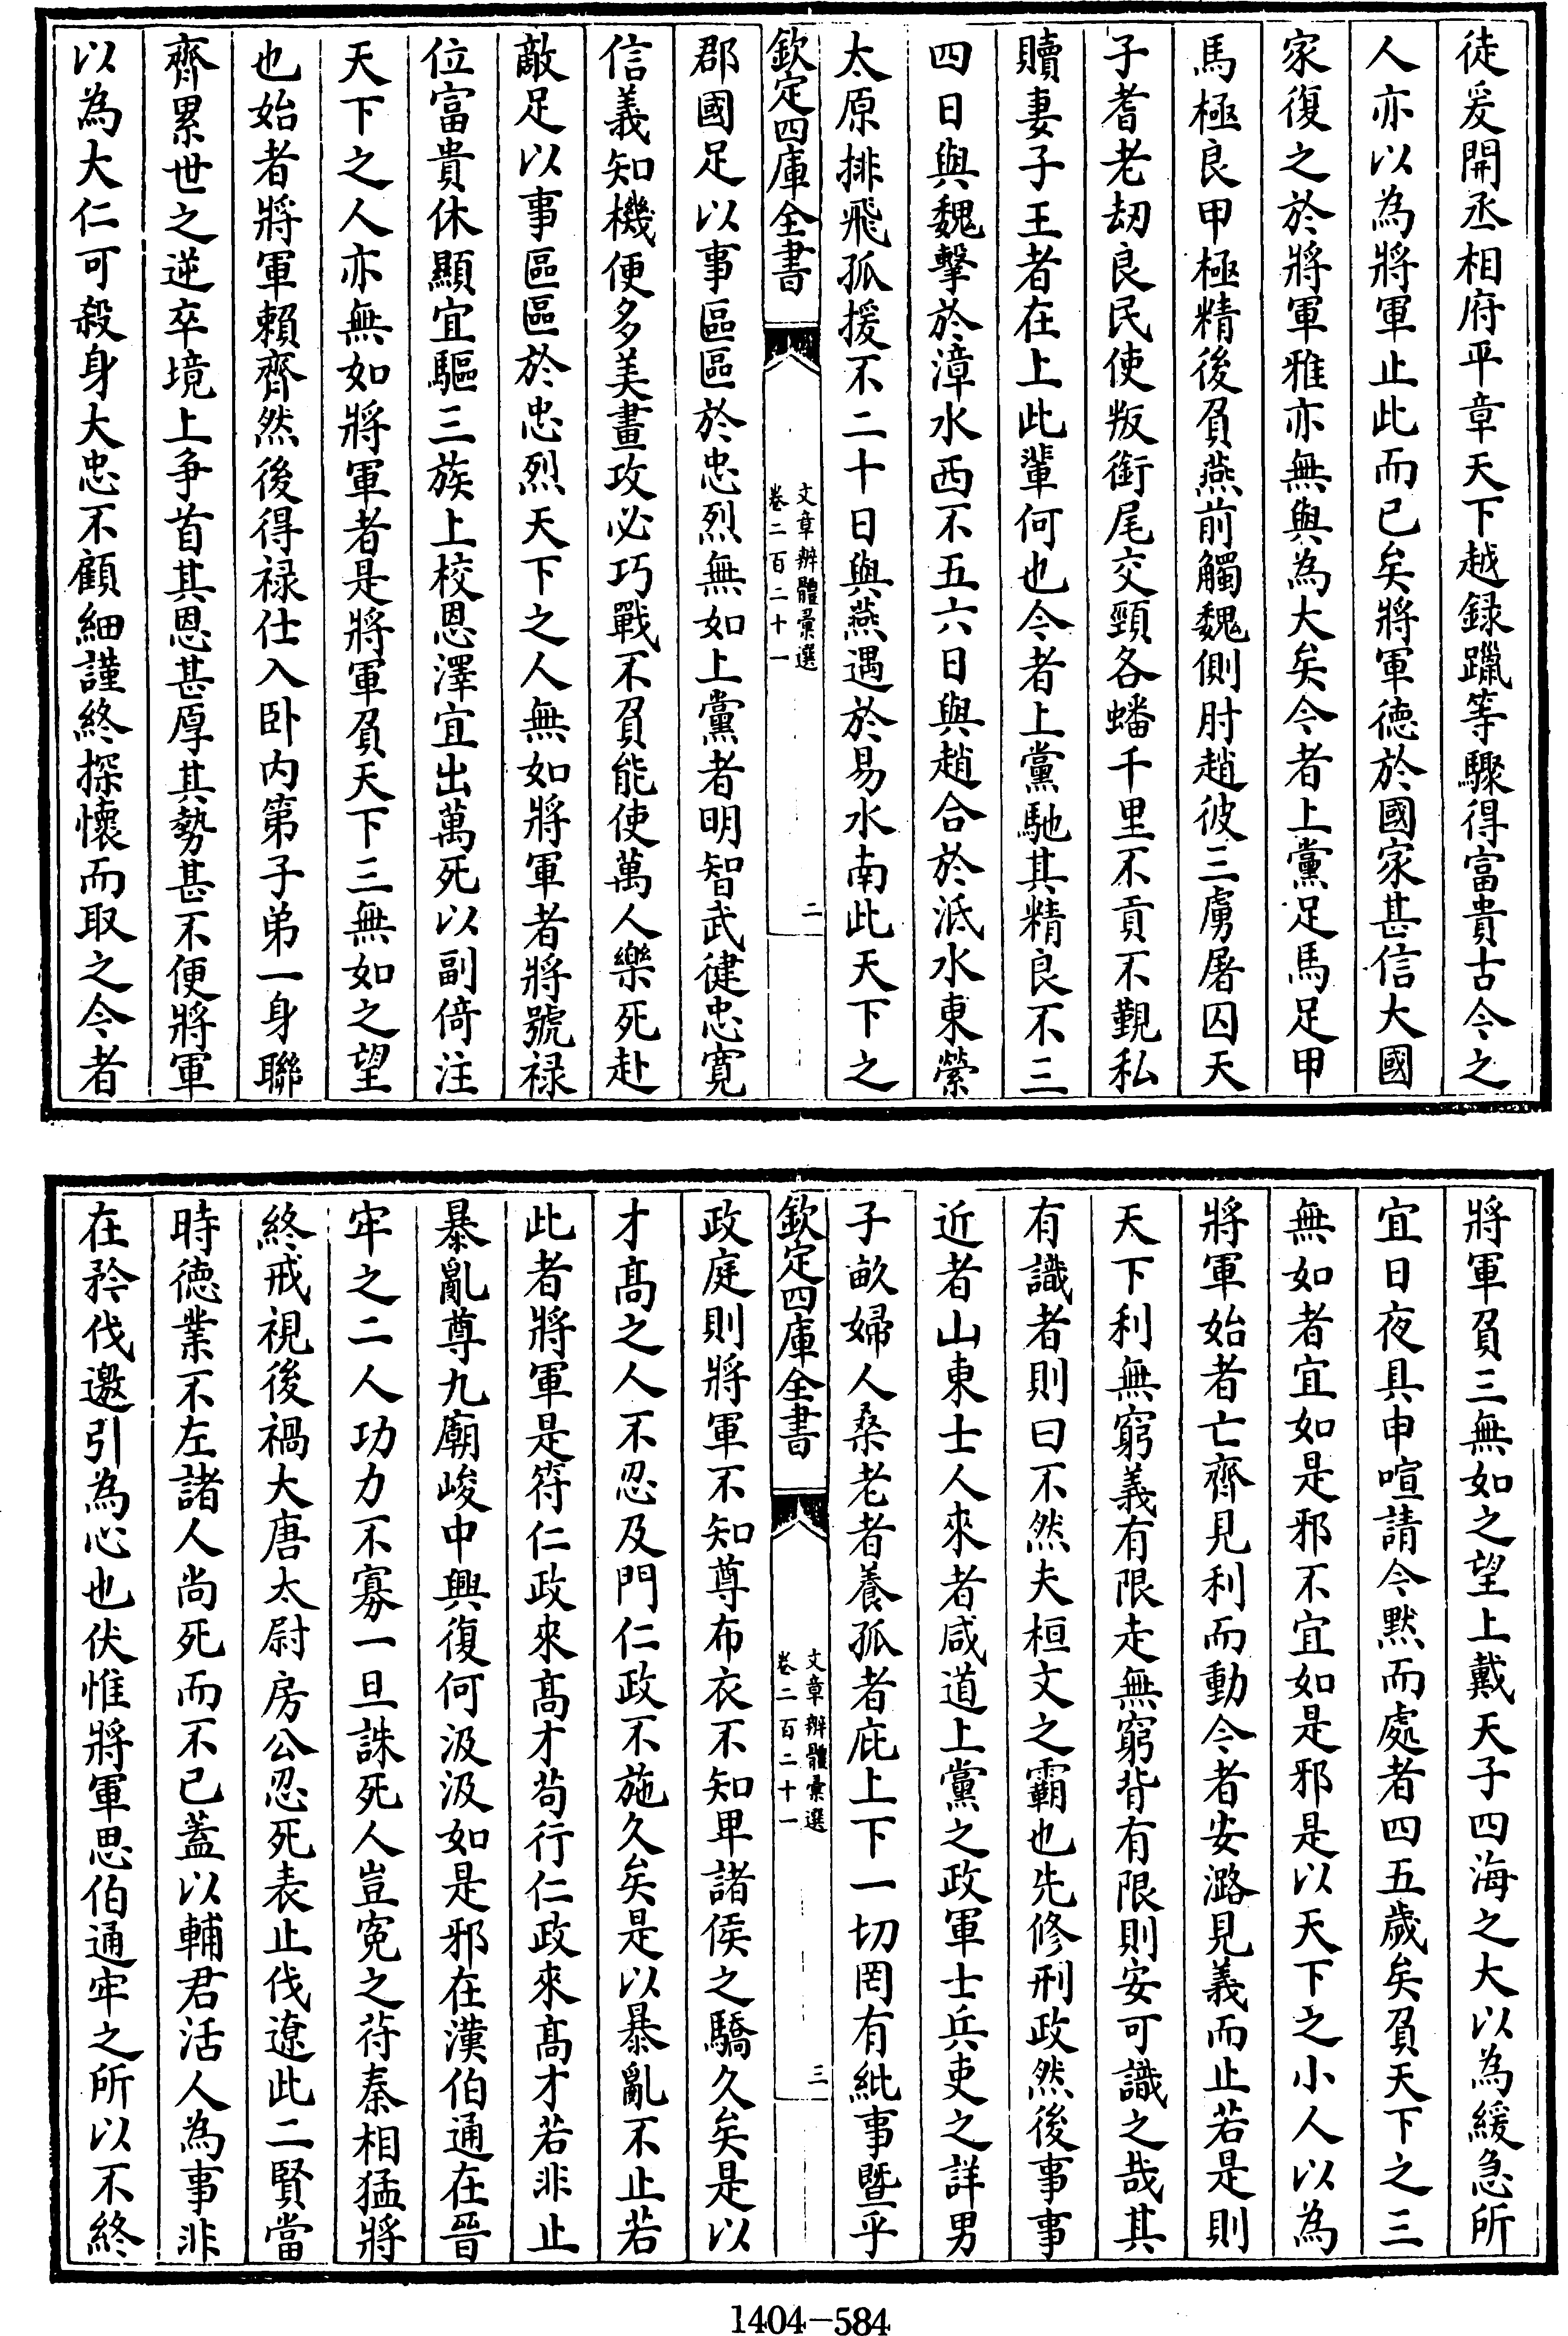 徒爰開丞相府平章天下越録躐等驟得富貴古今之
人亦以為將軍止此而已矣將軍德於國家甚信大國
家復之於將軍雅亦無與為大矣今者上黨足馬足甲
馬極良甲極精後負燕前觸魏側肘趙彼三虜屠囚天
子耆老刼良民使叛銜尾交頸各蟠千里不貢不覲私
贖妻子王者在上此輩何也今者上黨馳其精良不三
四日與魏擊於漳水西不五六日與趙合於泜水東縈
太原排飛狐援不二十日與燕遇於易水南此天下之
欽定四庫全書
文章辨體彙選
卷二百二十一
二
郡國足以事區區於忠烈無如上黨者明智武健忠寛
信義知機便多美畫攻必巧戰不負能使萬人樂死赴
敵足以事區區於忠烈天下之人無如將軍者將號禄
位富貴休顯宜驅三族上校恩澤宜出萬死以副倚注
天下之人亦無如將軍者是將軍負天下三無如之望
也始者將軍賴齊然後得禄仕入卧内第子弟一身聯
齊累世之逆卒境上争首其恩甚厚其勢甚不便將軍
以為大仁可殺身大忠不顧細謹終探懷而取之今者
將軍負三無如之望上戴天子四海之大以為緩急所
宜日夜具申喧請今黙而處者四五歲矣負天下之三
無如者宜如是邪不宜如是邪是以天下之小人以為
將軍始者亡齊見利而動今者安潞見義而止若是則
天下利無窮義有限走無窮背有限則安可識之哉其
有識者則曰不然夫桓文之霸也先修刑政然後事事
近者山東士人來者咸道上黨之政軍士兵吏之詳男
子畝婦人桑老者養孤者庇上下一切罔有紕事暨乎
欽定四庫全書
文章辨體彙選
卷二百二十一
三
政庭則將軍不知尊布衣不知卑諸侯之驕久矣是以
才髙之人不忍及門仁政不施久矣是以暴亂不止若
此者將軍是符仁政來髙才茍行仁政來髙才若非止
暴亂尊九廟峻中興復何汲汲如是邪在漢伯通在晉
牢之二人功力不寡一旦誅死人豈寃之苻秦相猛將
終戒視後禍大唐太尉房公忍死表止伐遼此二賢當
時德業不左諸人尚死而不已蓋以輔君活人為事非
在矜伐邀引為心也伏惟將軍思伯通牢之所以不終
1404-584